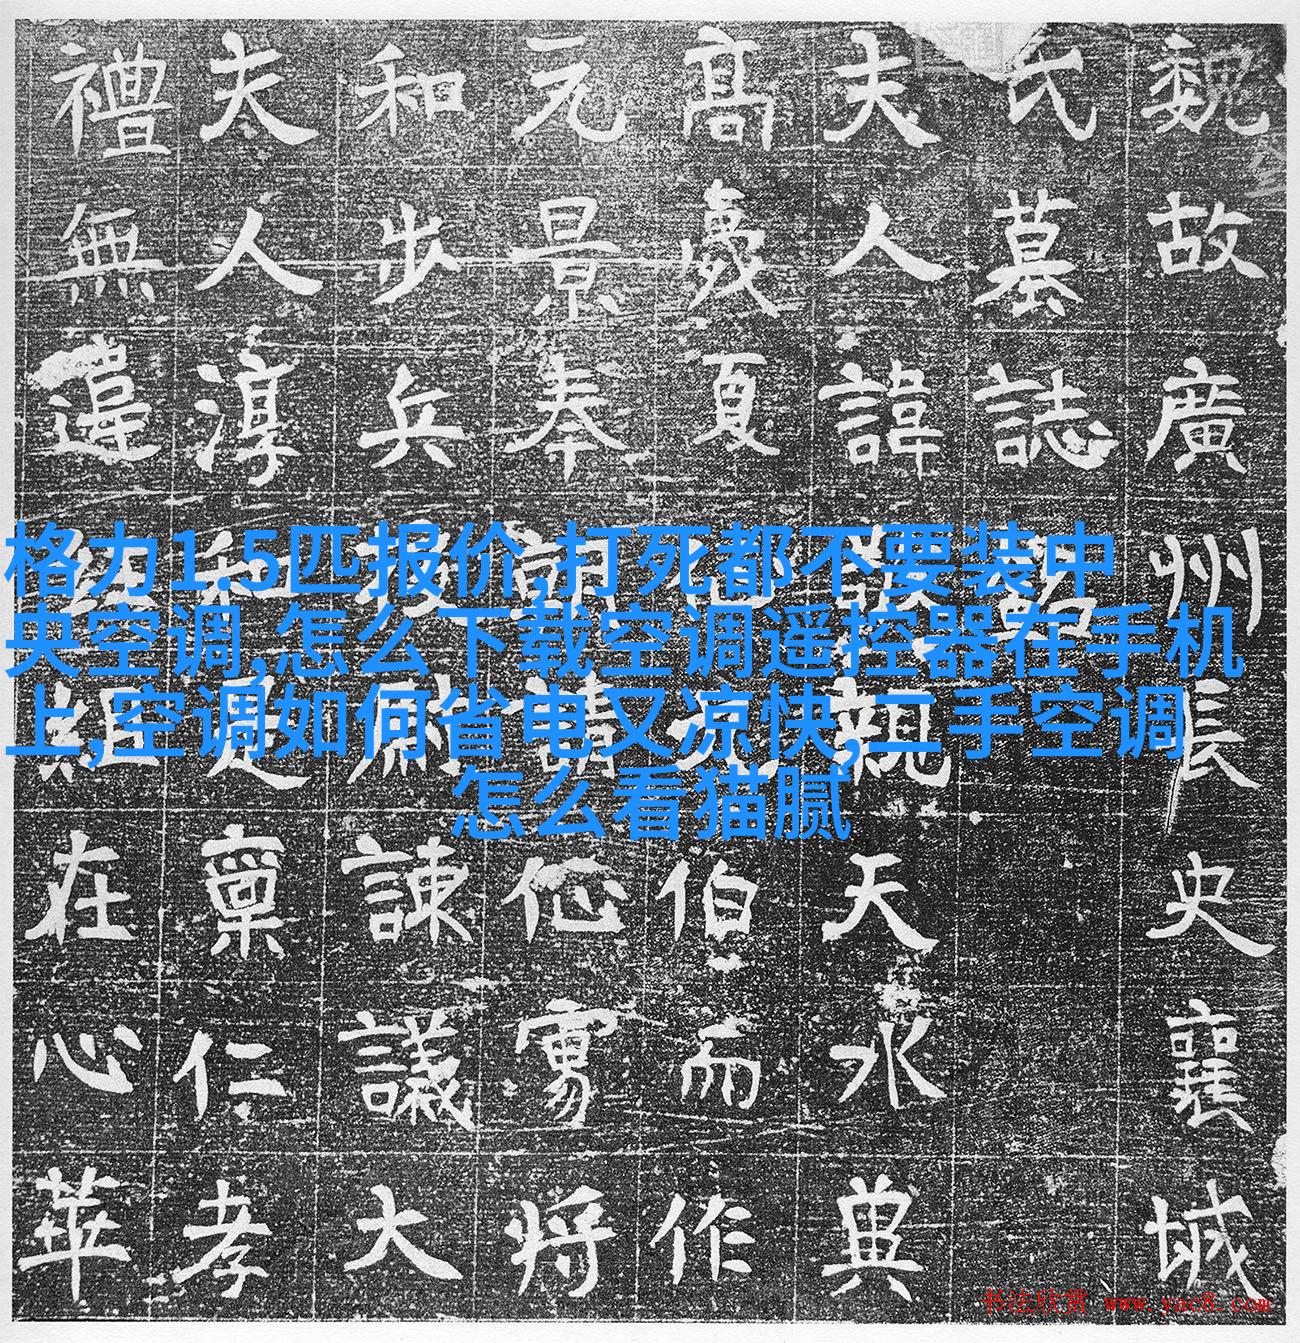 魏故廣州長史襄城
氏墓誌
夫人諱親天水
高夏伯而作
元景奉朝請将
和步兵諫議大
夫人淳和是稟仁孝
禮無違在心華
格力1.5匹报价,打死都不要装中
央空调,怎么下载空调遥控器在手机
上,空调如何省电又凉快,二手空调
怎么看猫腻
书法欣赏 www.yac8.com